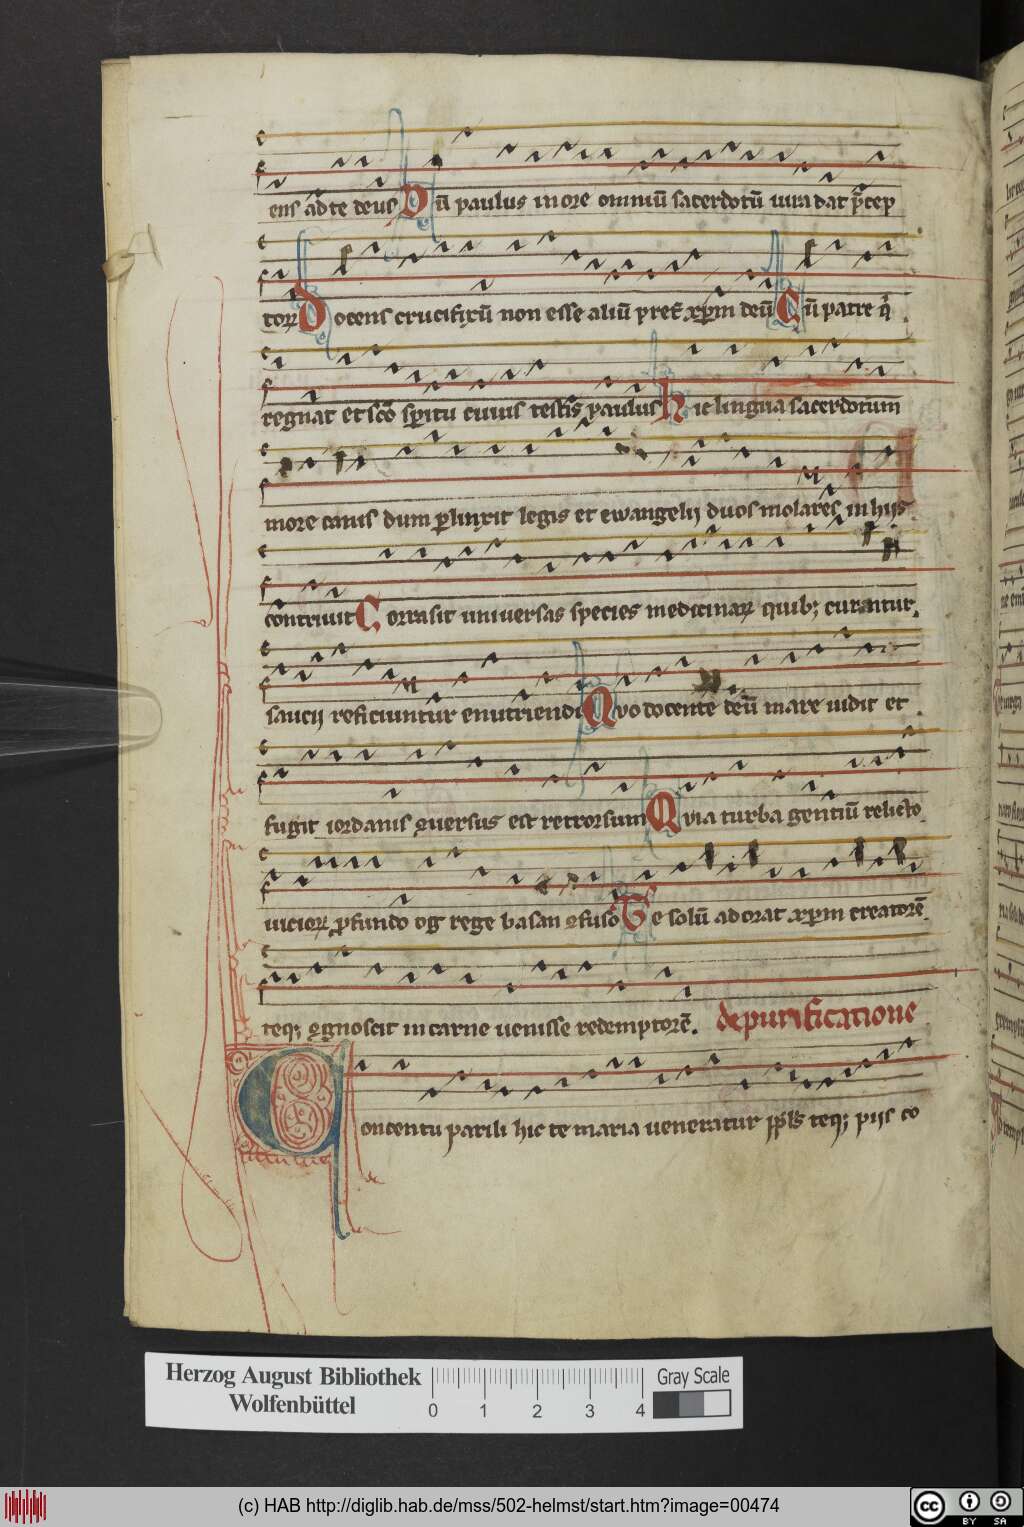 ens ad te deus Dū paulus in ore omniū sacerdotū iura dat p̄cep
torꝝ Docens crucifixū non esse aliū pret̉ xp̄m deū Cū patre q̉
regnat et sc̄o sp̄itu cuius testis paulus Hic lingua sacerdotum
more canis dum p̱linxit legis et ewangelij duos molares in hijs
contriuit Corrasit universas species medicinaꝝ quibꝫ curantur.
saucij reficiuntur enutriendi Quo docente deū mare uidit et
fugit iordanis ꝯuersus est retrorsum Quia turba gentiū relicto
uicioꝝ ꝓfundo og rege basan ꝯfuso Te solū adorat xp̄m creatorē
teqꝫ ꝯgnoscit in carne uenisse redemptorē. de purificatione
Concentu parili hic te maria ueneratur pp̄ls teqꝫ pijs co
Herzog August Bibliothek
Wolfenbüttel
0 1 2 3 4
Gray Scale
(c) HAB http://diglib.hab.de/mss/502-helmst/start.htm?image=00474
cc BY SA